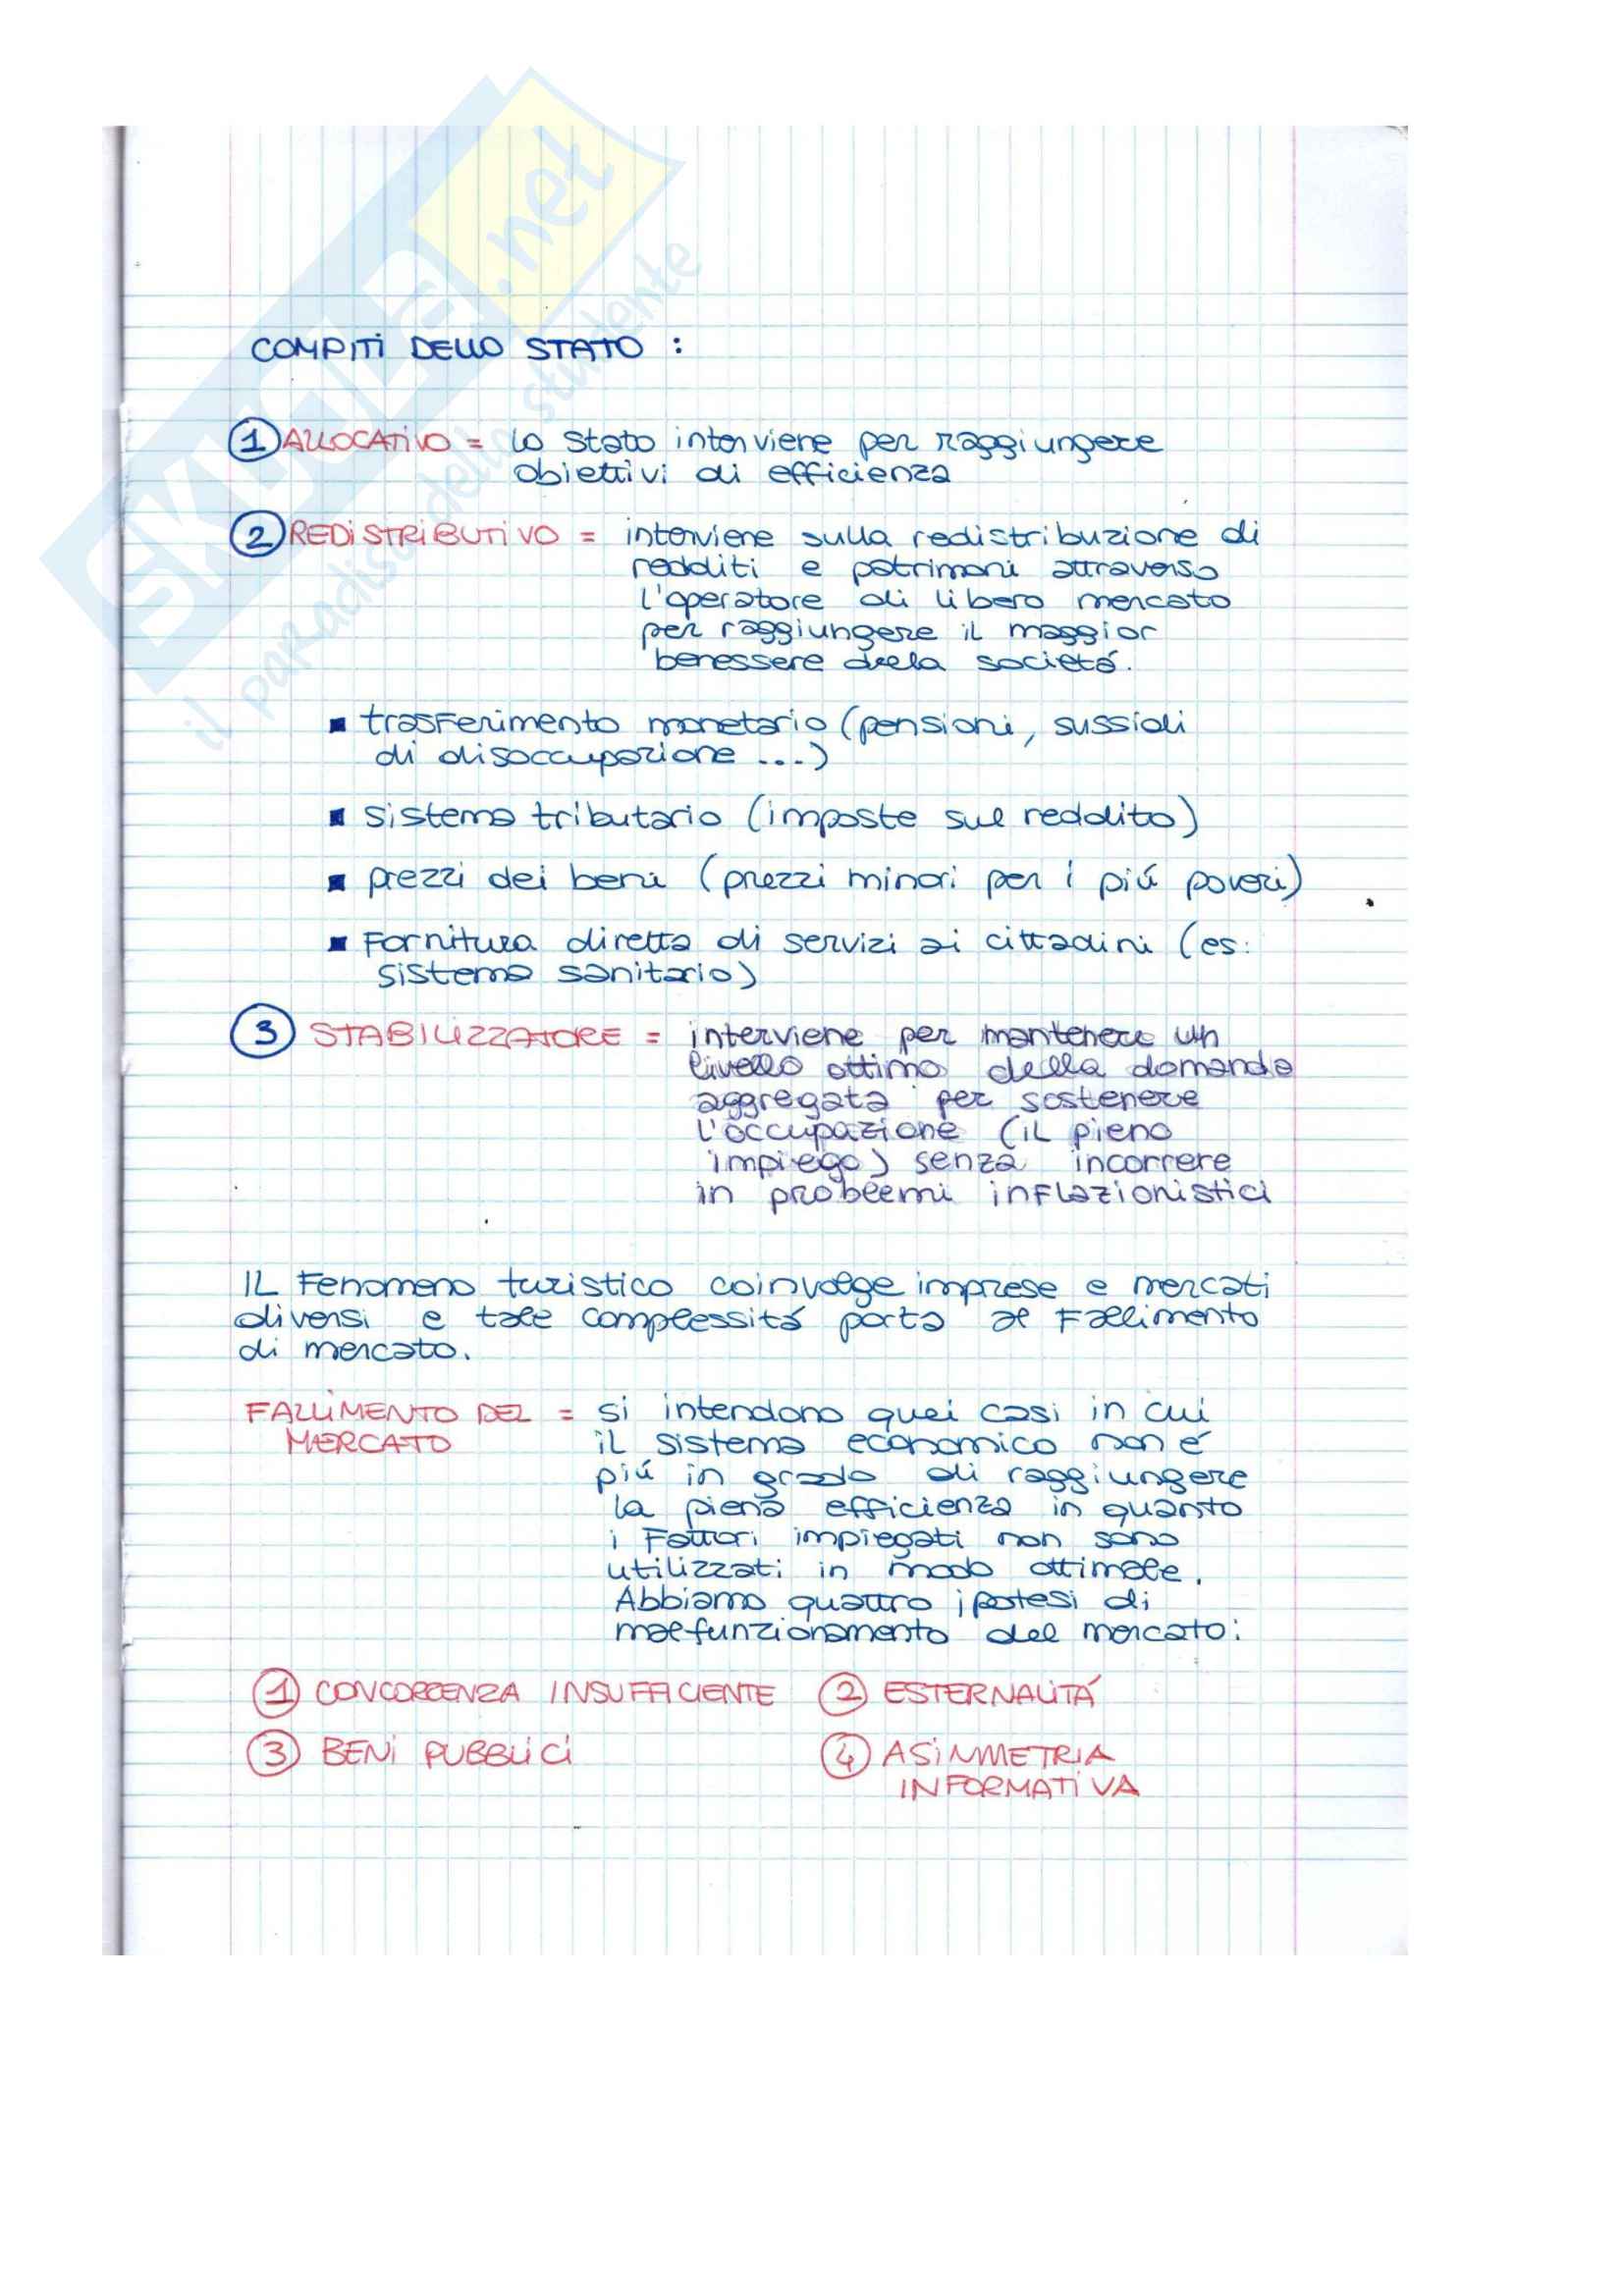 SKUOLA.net
il paradiso dello studente
COMPITI DELLO STATO :
1 ALLOCATIVO = lo stato interviene per raggiungere
obiettivi di efficienza
2 REDISTRIBUTIVO = interviene sulla redistribuzione di
redditi e patrimoni attraverso
l'operatore di libero mercato
per raggiungere il maggior
benessere della societá.
▪ trasferimento monetario (pensioni, sussidi
di disoccupazione ...)
▪ sistema tributario (imposte sul reddito)
▪ prezzi dei beni (prezzi minori per i piú poveri)
▪ Fornitura diretta di servizi ai cittadini (es:
sistema sanitario)
3 STABILIZZATORE = interviene per mantenere un
livello ottimo della domanda
aggregata per sostenere
l'occupazione (il pieno
impiego) senza incorrere
in problemi inflazionistici
Il Fenomeno turistico coinvolge imprese e mercati
diversi e tale complessitá porta al Fallimento
di mercato.
FALLIMENTO DEL = si intendono quei casi in cui
MERCATO il sistema economico non é
piú in grado di raggiungere
la piena efficienza in quanto
i Fattori impiegati non sono
utilizzati in modo ottimale.
Abbiamo quattro ipotesi di
malfunzionamento del mercato:
1 CONCORRENZA INSUFFICIENTE 2 ESTERNALITÁ
3 BENI PUBBLICI 4 ASIMMETRIA
INFORMATIVA